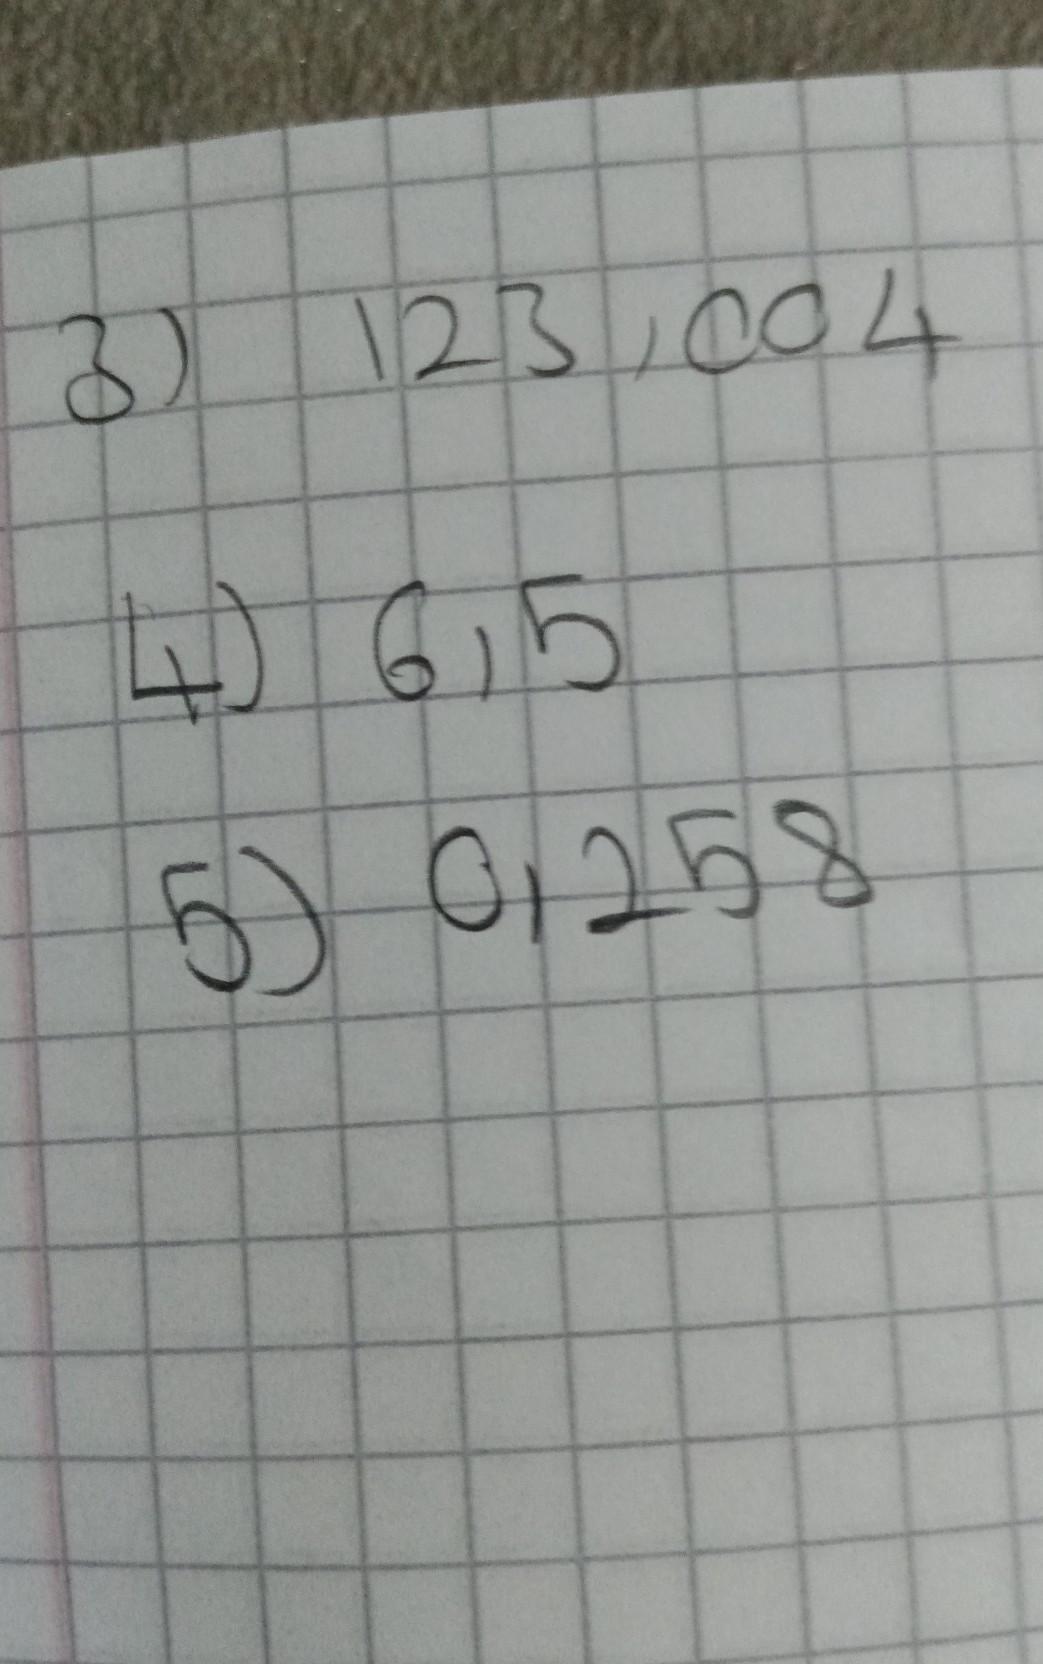 3) 123,004
4) 6,5
5) 0,258